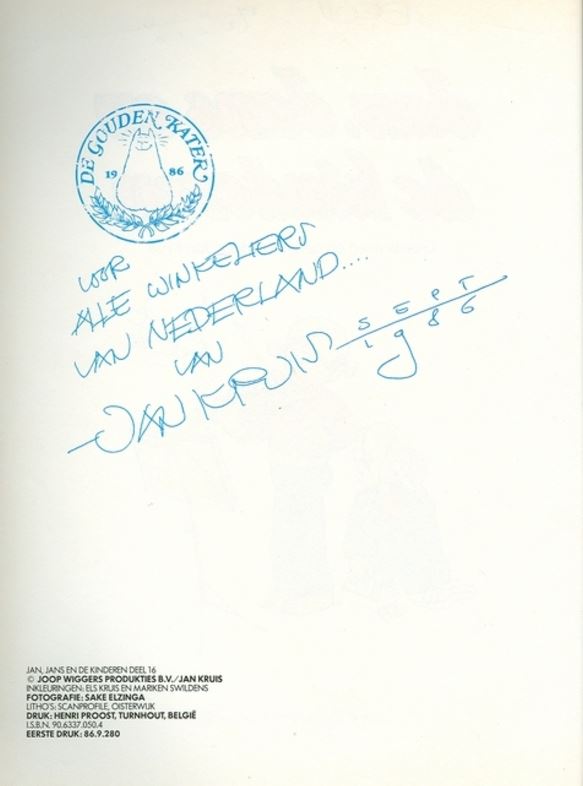 DE GOUDEN KATER
19 86
VOOR
ALLE WINKELIERS
VAN NEDERLAND....
VAN
JAN KRUIS SEPT
1986
JAN, JANS EN DE KINDEREN DEEL 16
© JOOP WIGGERS PRODUKTIES B.V./JAN KRUIS
INKLEURINGEN: ELS KRUIS EN MARIKEN SWILDENS
FOTOGRAFIE: SAKE ELZINGA
LITHO'S: SCANPROFILE, OISTERWIJK
DRUK: HENRI PROOST, TURNHOUT, BELGIË
I.S.B.N. 90.6337.050.4
EERSTE DRUK: 86.9.280